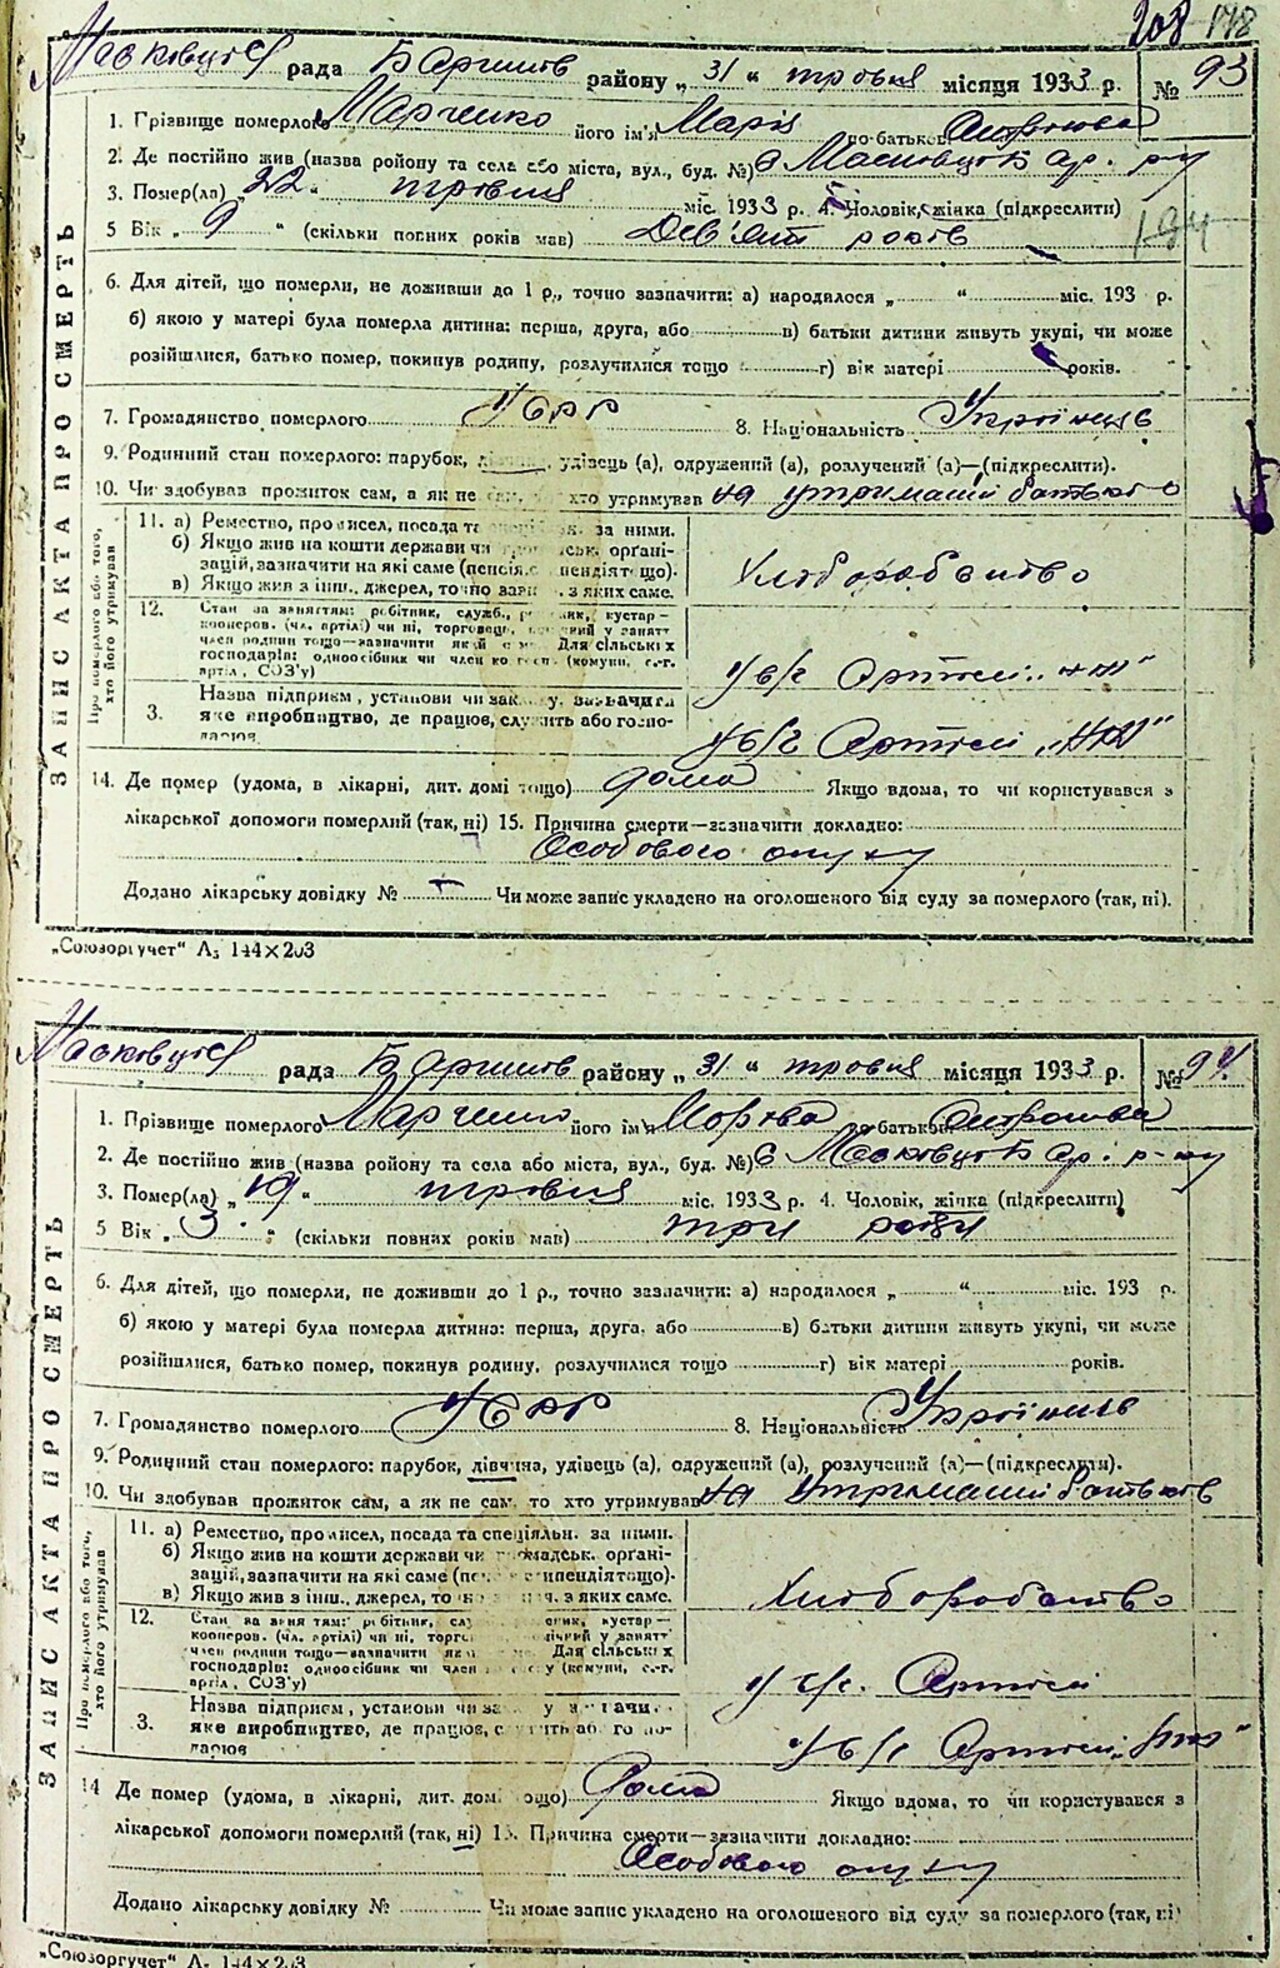 208 148
Масковцієї рада Баришів району „31“ травня місяця 1933 р. № 93
1. Прізвище померлого Марченко його ім'я Марія по-батькові
2. Де постійно жив (назва району та села або міста, вул., буд. №) в
3. Помер(ла) „22“ травня міс. 1933 р. 4. Чоловік, жінка (підкреслити)
5 Вік „9“ (скільки повних років мав) Дев'ять років
194
6. Для дітей, що померли, не доживши до 1 р., точно зазначити: а) народилося „ “ міс. 193 р.
б) якою у матері була померла дитина: перша, друга, або в) батьки дитини живуть укупі, чи може
розійшлися, батько помер, покинув родину, розлучилися тощо г) вік матері років.
7. Громадянство померлого УСРР 8. Національність Українець
9. Родинний стан померлого: парубок, удівець (а), одружений (а), розлучений (а)—(підкреслити).
10. Чи здобував прожиток сам, а як не хто утримував на утриманні батьків
ЗАПИС АКТА ПРО СМЕРТЬ
Про померлого або того, хто його утримував
11. а) Ремество, промисел, посада та за ними.
б) Якщо жив на кошти держави чи органі-
зацій, зазначити на які саме
в) Якщо жив з інш. джерел, точно з яких саме.
Хліборобство
12. Стан за заняттям: робітник, служб., кустар—
кооперов. (чл. артілі) чи ні, торговець, у занятт
член родини тощо—зазначити Для сільських
господарів: одноосібник чи член (комуни, с.-г.
артіл., СОЗ'у)
у с/г Артілі
3. Назва підприєм., установи чи зазначити
яке виробництво, де працює, служить або госпо-
дарює
у с/г Артілі
14. Де помер (удома, в лікарні, дит. домі тощо) дома Якщо вдома, то чи користувався з
лікарської допомоги померлий (так, ні) 15. Причина смерти—зазначити докладно:
Особового опуху
Додано лікарську довідку № — Чи може запис укладено на оголошеного від суду за померлого (так, ні).
„Союзоргучет“ А₅ 144×203
Масковцієї рада Баришів району „31“ травня місяця 1933 р. № 94.
1. Прізвище померлого Марченко його ім'я по батькові
2. Де постійно жив (назва району та села або міста, вул., буд. №) в
3. Помер(ла) „19“ травня міс. 1933 р. 4. Чоловік, жінка (підкреслити)
5 Вік „3“ (скільки повних років мав) три роки
6. Для дітей, що померли, не доживши до 1 р., точно зазначити: а) народилося „ “ міс. 193 р.
б) якою у матері була померла дитина: перша, друга, або в) батьки дитини живуть укупі, чи може
розійшлися, батько помер, покинув родину, розлучилися тощо г) вік матері років.
7. Громадянство померлого УСРР 8. Національність Українець
9. Родинний стан померлого: парубок, дівчина, удівець (а), одружений (а), розлучений (а)—(підкреслити).
10. Чи здобував прожиток сам, а як не сам, то хто утримував на утриманні батьків
ЗАПИС АКТА ПРО СМЕРТЬ
Про померлого або того, хто його утримував
11. а) Ремество, промисел, посада та спеціяльн. за ними.
б) Якщо жив на кошти держави чи громадськ. органі-
зацій, зазначити на які саме
в) Якщо жив з інш., джерел, з яких саме.
Хліборобство
12. Стан за заняттям: робітник, кустар—
кооперов. (чл. артілі) чи ні, у занятт
член родини тощо—зазначити Для сільських
господарів: одноосібник чи член (комуни, с.-г.
артіл., СОЗ'у)
у с/г. Артілі
3. Назва підприєм., установи чи
яке виробництво, де працює,
дарює
у с/г Артілі
14 Де помер (удома, в лікарні, дит. домі тощо) Дома Якщо вдома, то чи користувався з
лікарської допомоги померлий (так, ні) 15. Причина смерти—зазначити докладно:
Особового опуху
Додано лікарську довідку № Чи може запис укладено на оголошеного від суду за померлого (так, ні)
„Союзоргучет“ А₅ 144×203